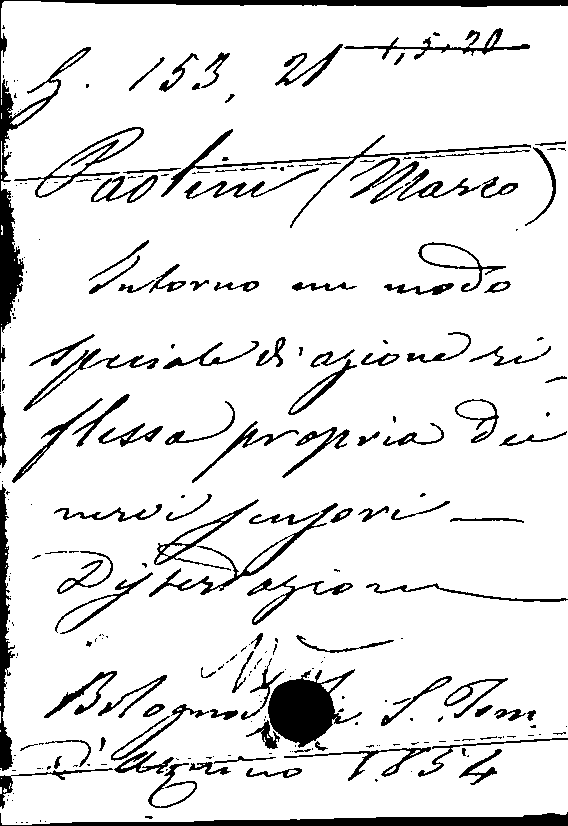 G. 153, 21 1, 5, 20
Paolini (Marco)
Intorno un modo
speciale di azione ri_
flessa propria dei
nervi sensori —
Dissertazione
Bologna S. Tom.
d'Aquino 1854